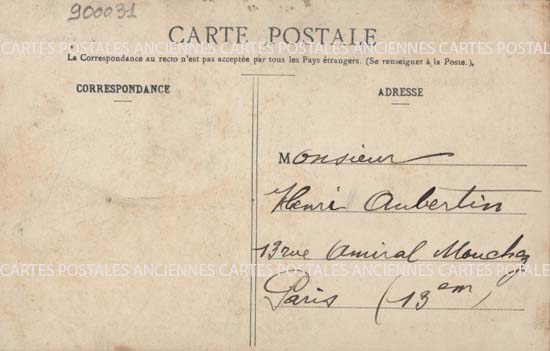 900031
CARTE POSTALE
CARTES POSTALES ANCIENNES CARTES POSTALES ANCIENNES CARTES POSTALES
La Correspondance au recto n'est pas acceptée par tous les Pays étrangers. (Se renseigner à la Poste.)
CORRESPONDANCE
ADRESSE
Monsieur
Henri Aubertin
13 rue Amiral Mouchez
CARTES POSTALES ANCIENNES CARTES POSTALES ANCIENNES CARTES POSTALES
Paris (13em)